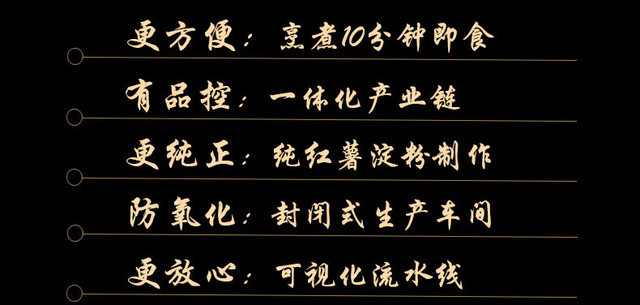 更方便：烹煮10分钟即食
有品控：一体化产业链
更纯正：纯红薯淀粉制作
防氧化：封闭式生产车间
更放心：可视化流水线